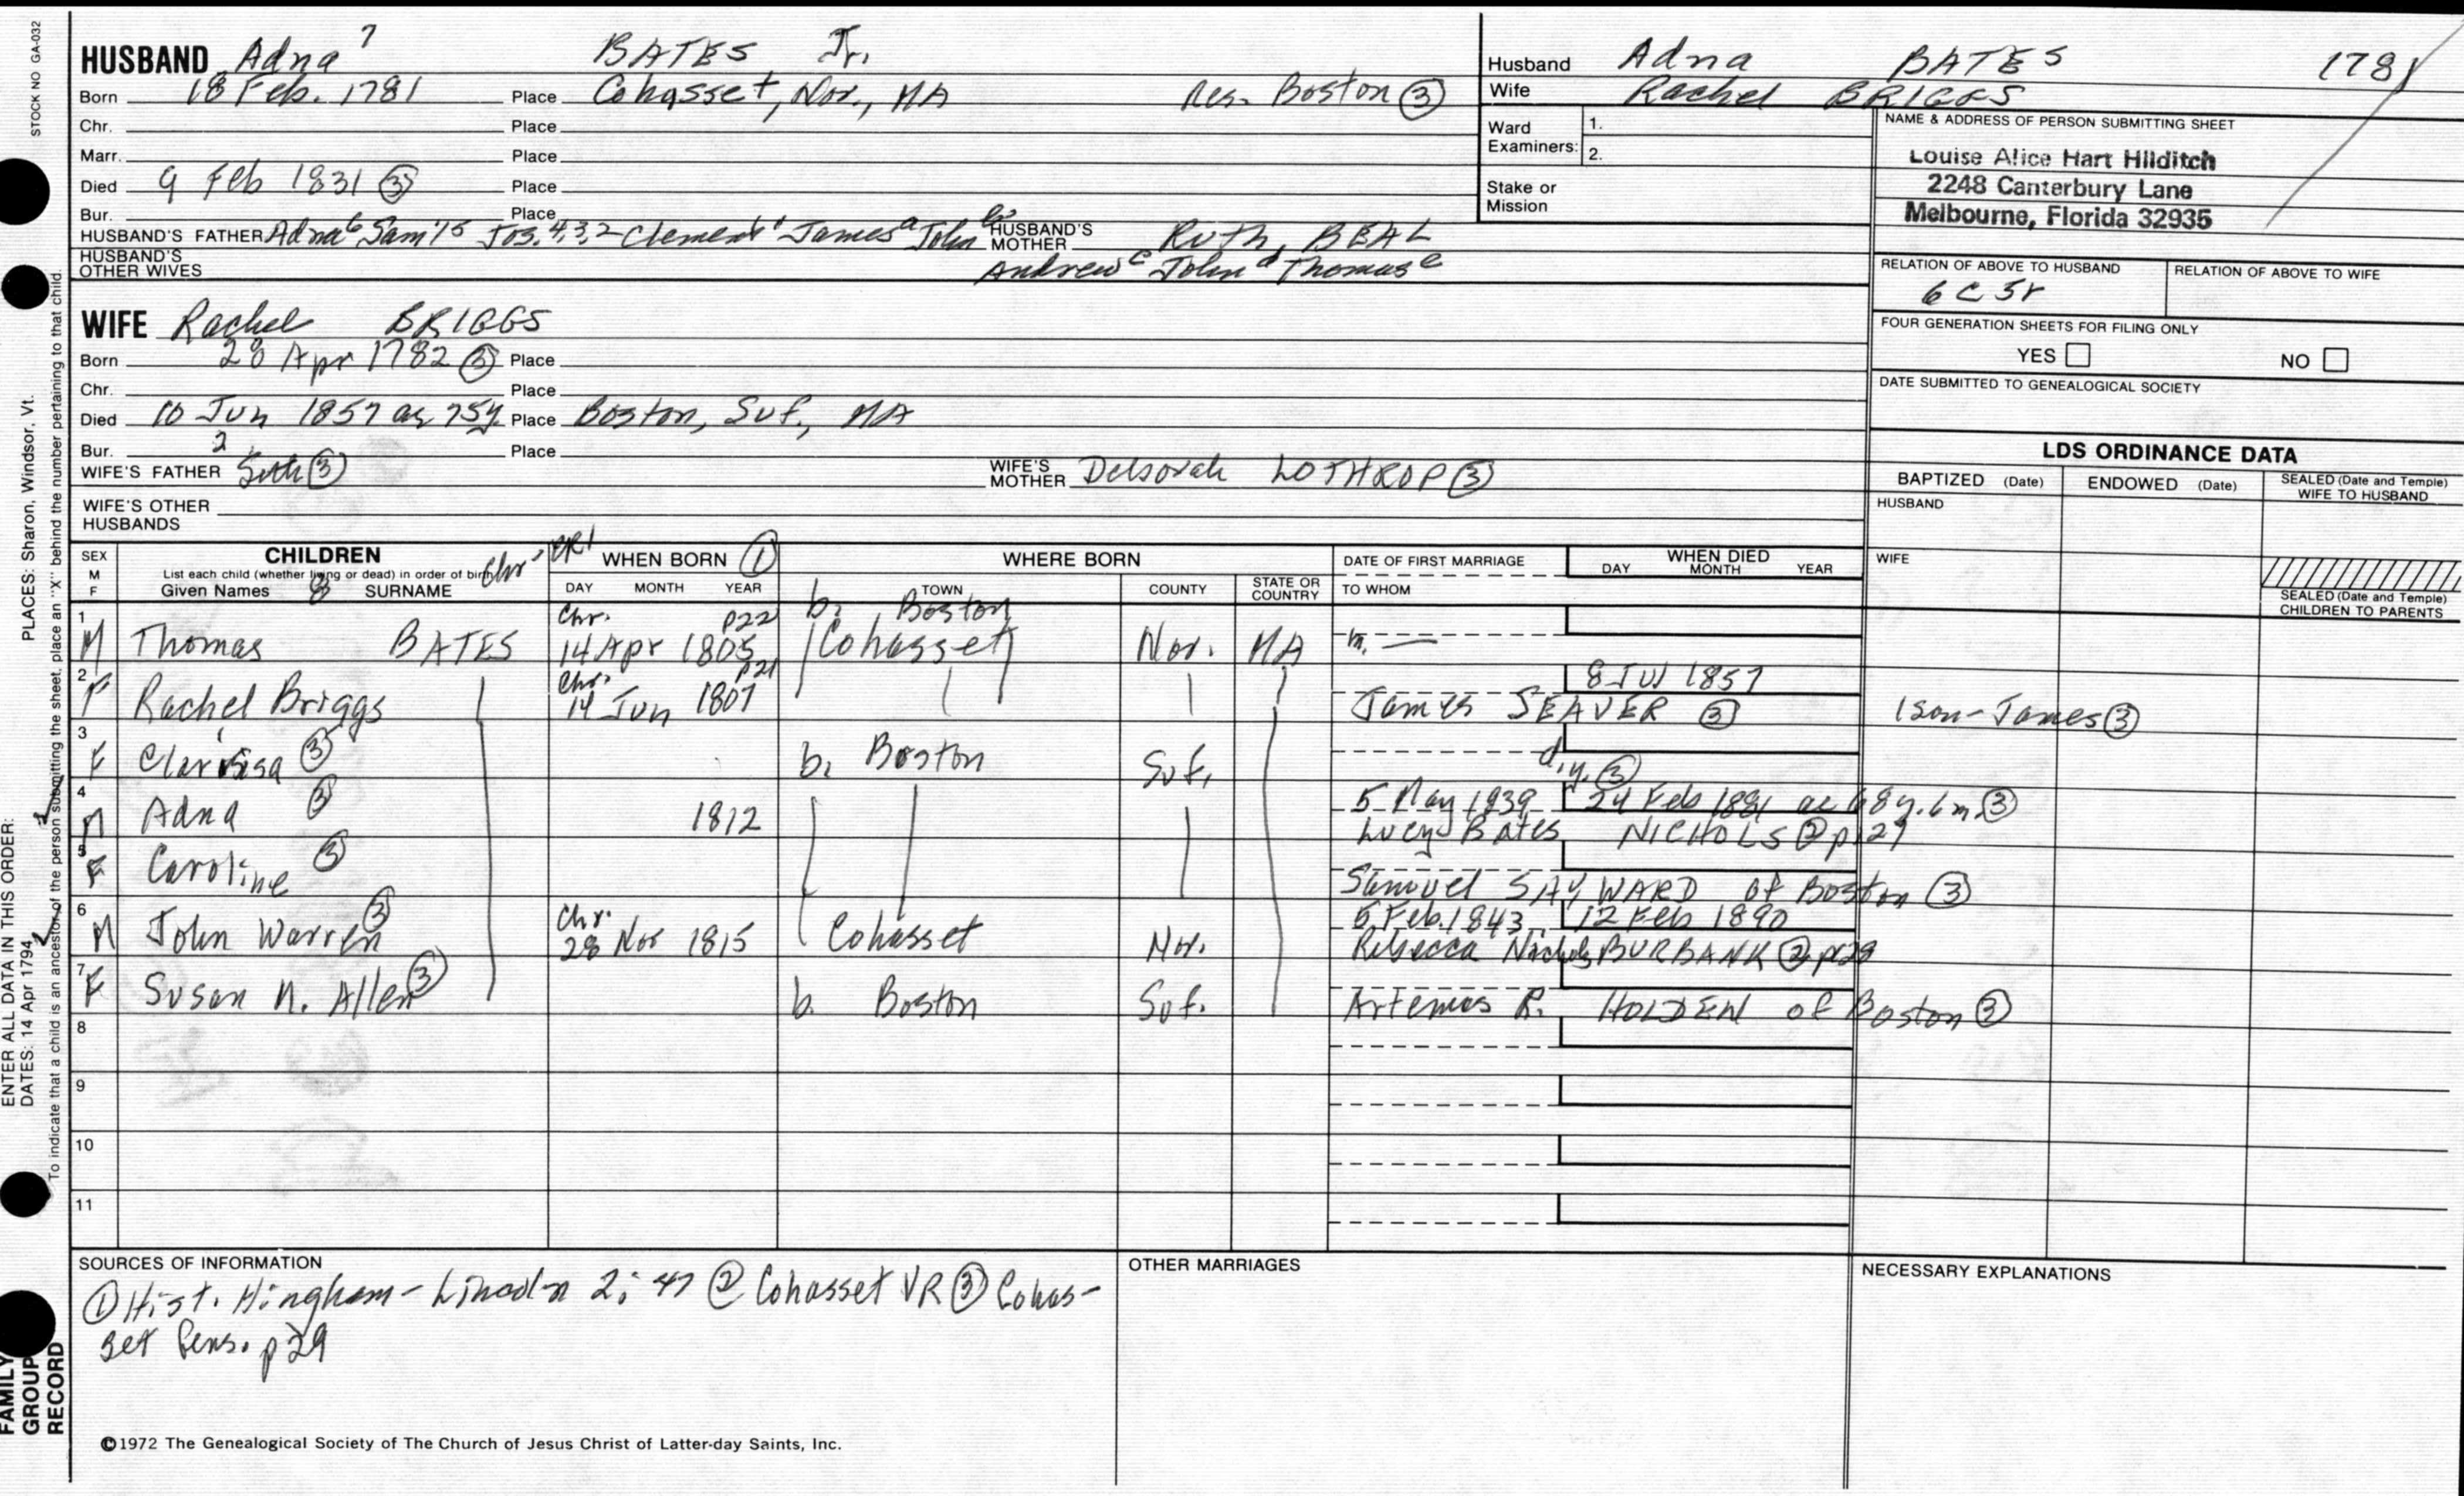 STOCK NO GA-032
HUSBAND Adna 7 BATES Jr.
Born 18 Feb. 1781 Place Cohasset, Nor., MA Res. Boston ③
Chr. Place
Marr. Place
Died 9 Feb 1831 ③ Place
Bur. Place
HUSBAND'S FATHER Adna 6 Sam'l 5 Jos. 4,3,2 Clement 1 James a John b HUSBAND'S MOTHER Ruth, BEAL
HUSBAND'S OTHER WIVES Andrew c John d Thomas e
Husband Adna BATES 1781
Wife Rachel BRIGGS
Ward Examiners: 1.
2.
Stake or Mission
NAME & ADDRESS OF PERSON SUBMITTING SHEET
Louise Alice Hart Hilditch
2248 Canterbury Lane
Melbourne, Florida 32935
RELATION OF ABOVE TO HUSBAND RELATION OF ABOVE TO WIFE
6 C 5r
FOUR GENERATION SHEETS FOR FILING ONLY
YES NO
DATE SUBMITTED TO GENEALOGICAL SOCIETY
WIFE Rachel BRIGGS
Born 28 Apr 1782 ③ Place
Chr. Place
Died 10 Jun 1857 ae 75y. Place Boston, Suf., MA
Bur. 2 Place
WIFE'S FATHER Seth ③ WIFE'S MOTHER Deborah LOTHROP ③
WIFE'S OTHER HUSBANDS
LDS ORDINANCE DATA
BAPTIZED (Date) ENDOWED (Date) SEALED (Date and Temple) WIFE TO HUSBAND
HUSBAND
WIFE
SEALED (Date and Temple) CHILDREN TO PARENTS
SEX M F CHILDREN Chr - CR1 WHEN BORN ① WHERE BORN DATE OF FIRST MARRIAGE WHEN DIED
List each child (whether living or dead) in order of birth
Given Names SURNAME DAY MONTH YEAR TOWN COUNTY STATE OR COUNTRY TO WHOM DAY MONTH YEAR
1 Chr. p22 b. Boston
M Thomas BATES 14 Apr 1805 Cohasset Nor. MA m. —
2 Chr. p21 8 Jul 1857
F Rachel Briggs 14 Jun 1807 James SEAVER ③ 1 son - James ③
3
F Clarissa ③ b. Boston Suf. d.y. ③
4 5 May 1839 24 Feb 1881 ae 68y. 6m. ③
M Adna ③ 1812 Lucy Bates NICHOLS ② p127
5
F Caroline ③ Samuel SAYWARD of Boston ③
6 Chr. 5 Feb. 1843 12 Feb 1890
M John Warren ③ 28 Nov 1815 Cohasset Nor. Rebecca Nichols BURBANK ② p128
7
F Susan N. Allen ③ b. Boston Suf. Artemas R. HOLDEN of Boston ③
8
9
10
11
SOURCES OF INFORMATION
① Hist. Hingham - Lincoln 2: 47 ② Cohasset VR ③ Cohas-
set Gens. p29
OTHER MARRIAGES
NECESSARY EXPLANATIONS
©1972 The Genealogical Society of The Church of Jesus Christ of Latter-day Saints, Inc.
ENTER ALL DATA IN THIS ORDER:
DATES: 14 Apr 1794 PLACES: Sharon, Windsor, Vt.
To indicate that a child is an ancestor of the person submitting the sheet, place an "X" behind the number pertaining to that child.
FAMILY GROUP RECORD